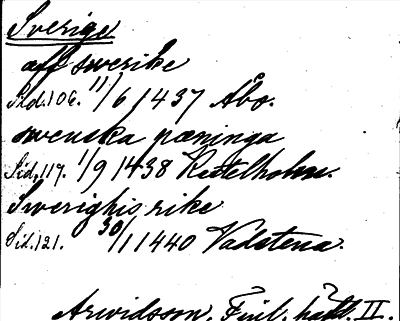 Sverige
aff swerike
Sid. 106. 11/6 1437 Åbo.
swenska pæninga
Sid. 117. 1/9 1438 Kastelholm.
Swerighis rike
Sid. 121. 30/1 1440 Vadstena.
Arwidsson, Finl. hall. II.